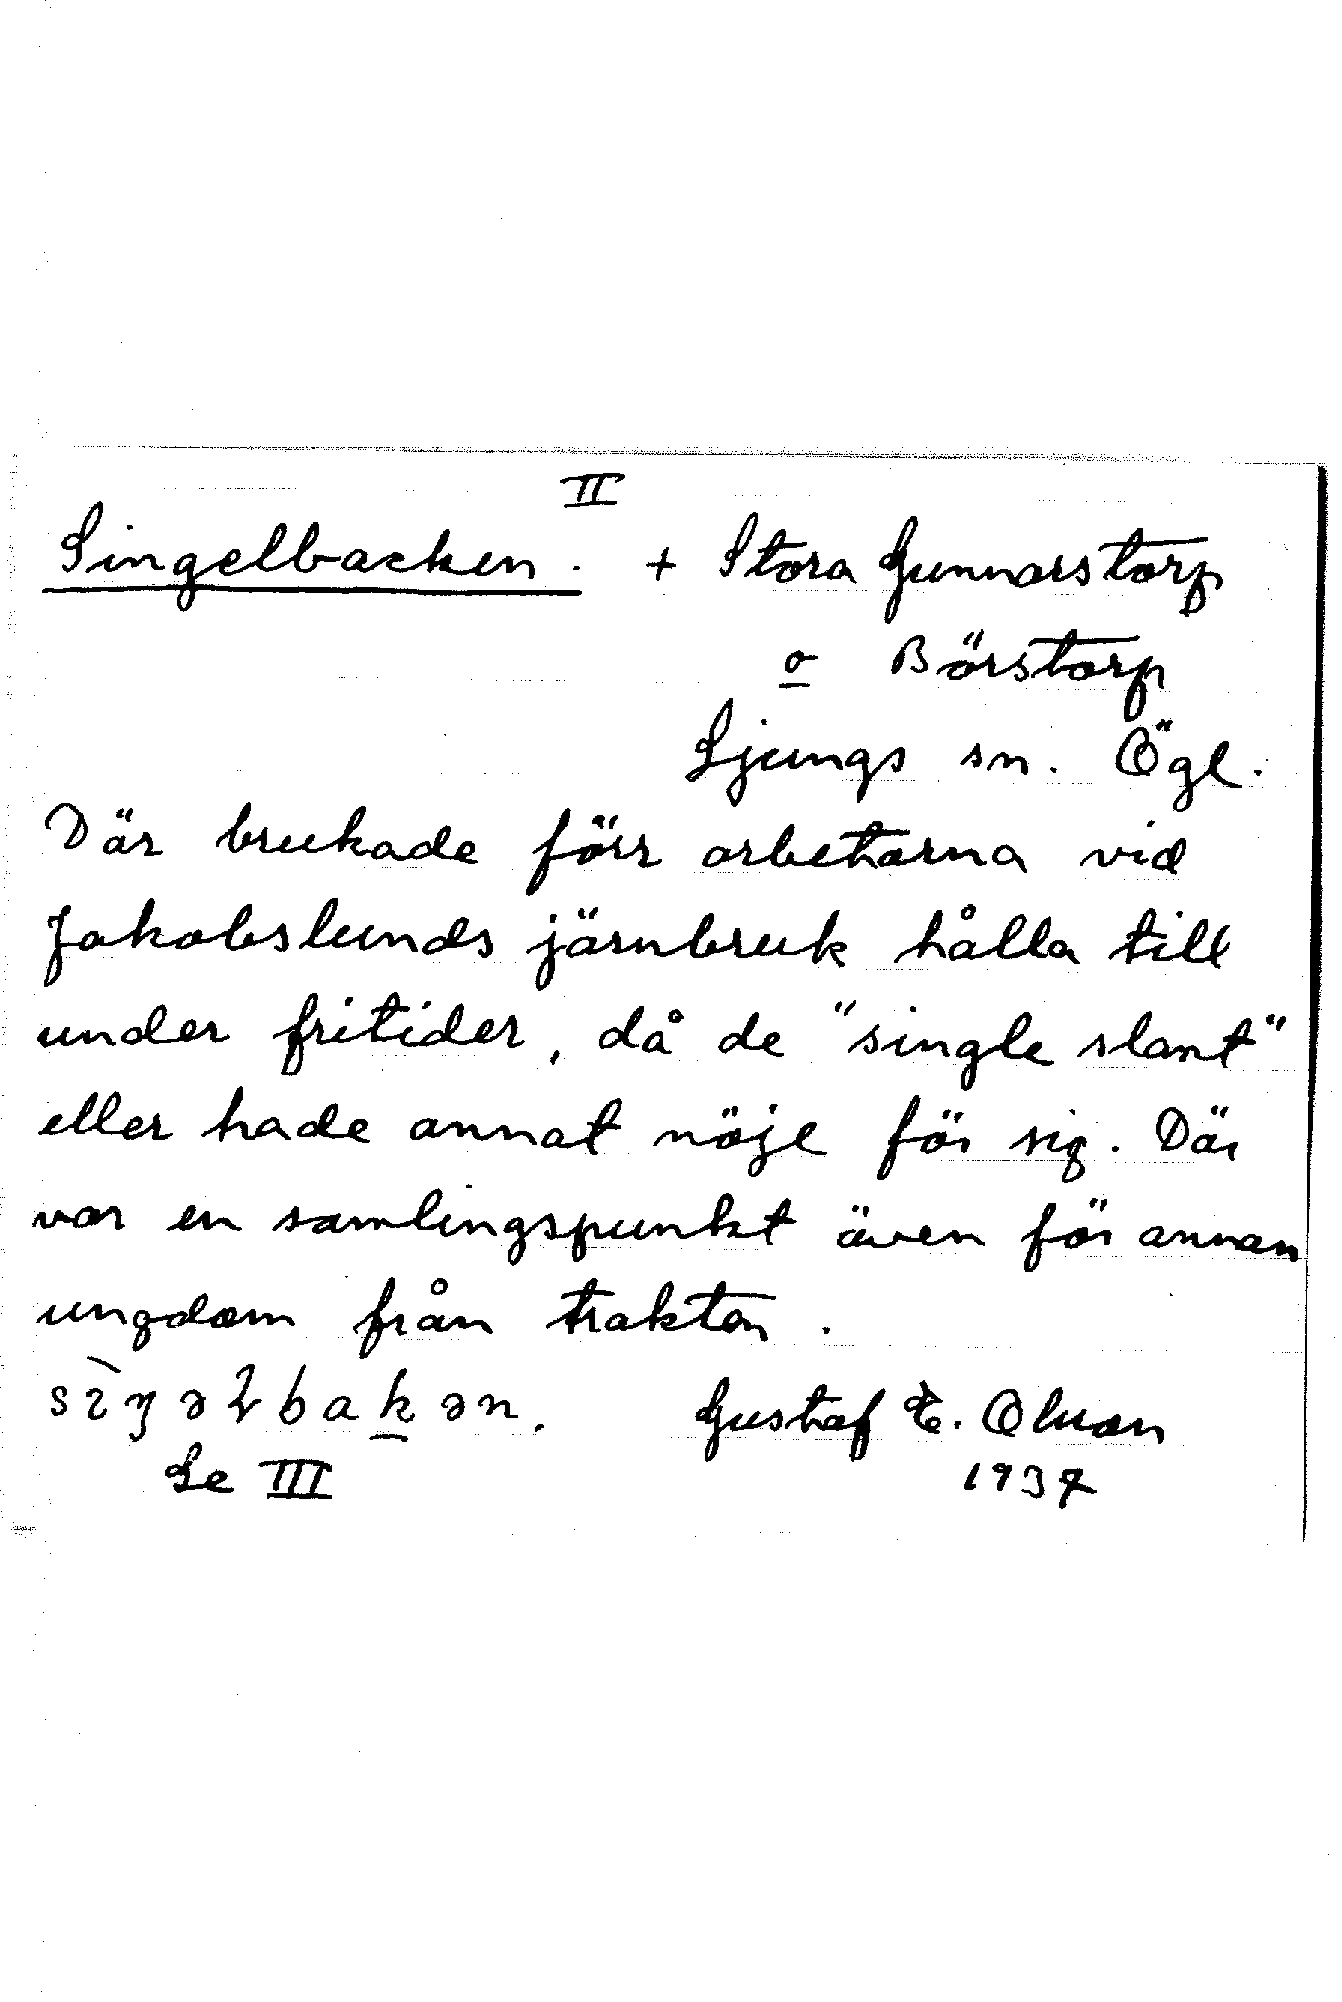 II
Singelbacken. + Stora Gunnarstorp
o Börstorp
Ljungs sn. Ögl.
Där brukade förr arbetarna vid
Jakobslunds järnbruk hålla till
under fritider, då de "single slant"
eller hade annat nöje för sig. Där
var en samlingspunkt även för annan
ungdom från trakten.
Gustaf E. Olsson
Se III 1937